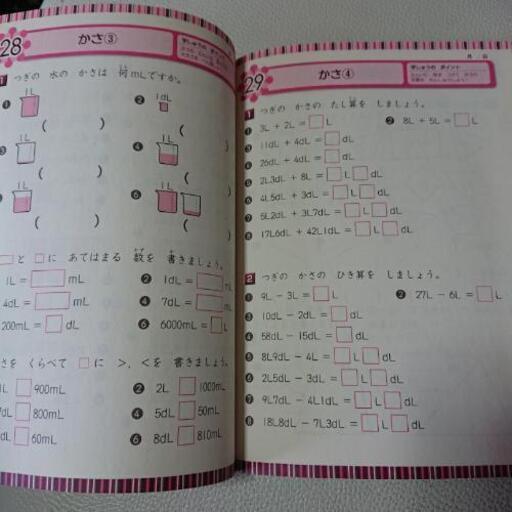 28
かさ③
1 つぎの 水の かさは 何mLですか。
❶ 1L ( )
❷ 1dL ( )
❸ 1L ( )
❹ 1L ( )
1L ( )
❻ 1L ( )
と □に あてはまる 数を 書きましょう。
1L = □ mL
❷ 1dL = □ mL
4dL = □ mL
❹ 7dL = □ mL
200mL = □ dL
❻ 6000mL = □ L
さを くらべて □に >, <を 書きましょう。
L □ 900mL
❷ 2L □ 1000mL
7dL □ 800mL
❹ 5dL □ 50mL
dL □ 60mL
❻ 8dL □ 810mL
29
かさ④
月 日
がくしゅうの ポイント
1 つぎの かさの たし算を しましょう。
❶ 3L + 2L = □L
❷ 8L + 5L = □L
❸ 11dL + 4dL = □dL
❹ 26dL + 4dL = □dL
❺ 2L3dL + 8L = □L□dL
❻ 4L5dL + 3dL = □L□dL
❼ 5L2dL + 3L7dL = □L□dL
❽ 17L6dL + 42L1dL = □L□dL
2 つぎの かさの ひき算を しましょう。
❶ 9L − 3L = □L
❷ 27L − 6L = □L
❸ 10dL − 2dL = □dL
❹ 58dL − 15dL = □dL
❺ 8L9dL − 4L = □L□dL
❻ 2L5dL − 3dL = □L□dL
❼ 9L7dL − 4L1dL = □L□dL
❽ 18L8dL − 7L3dL = □L□dL